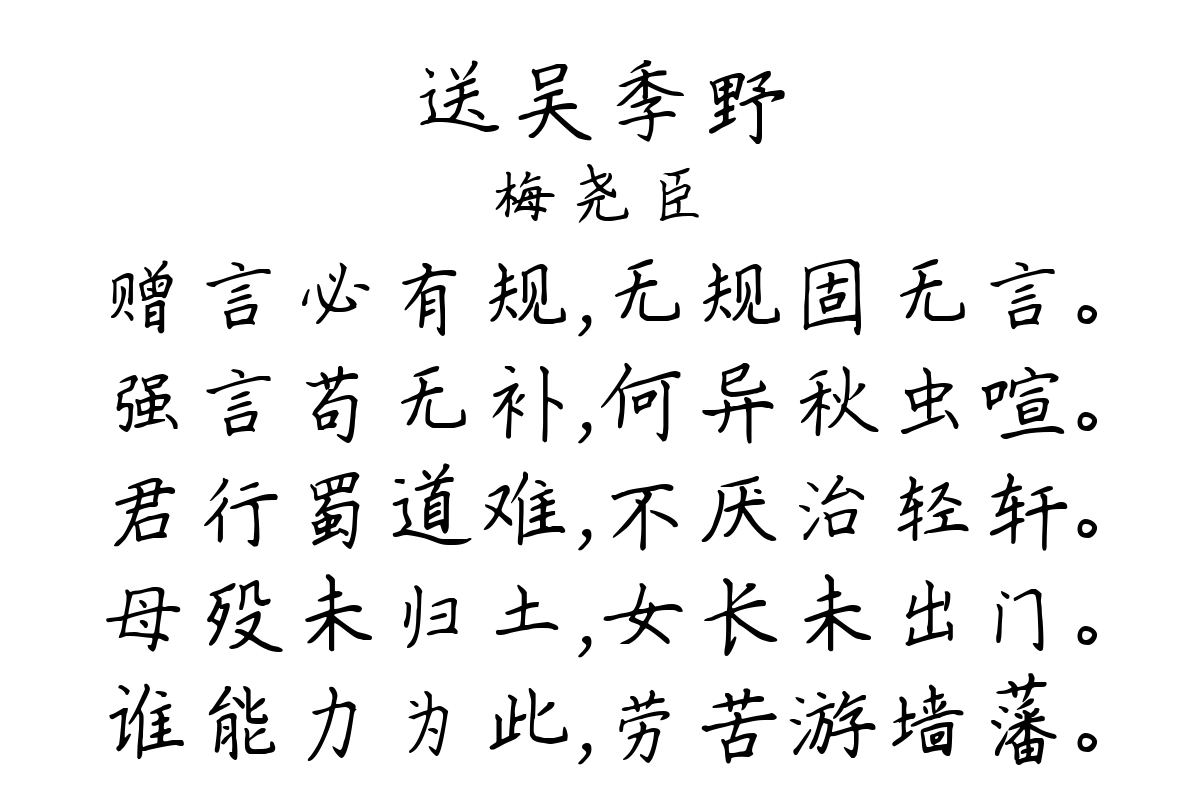 送吴季野
梅尧臣
赠言必有规,无规固无言。
强言苟无补,何异秋虫喧。
君行蜀道难,不厌治轻轩。
母殁未归土,女长未出门。
谁能力为此,劳苦游墙藩。